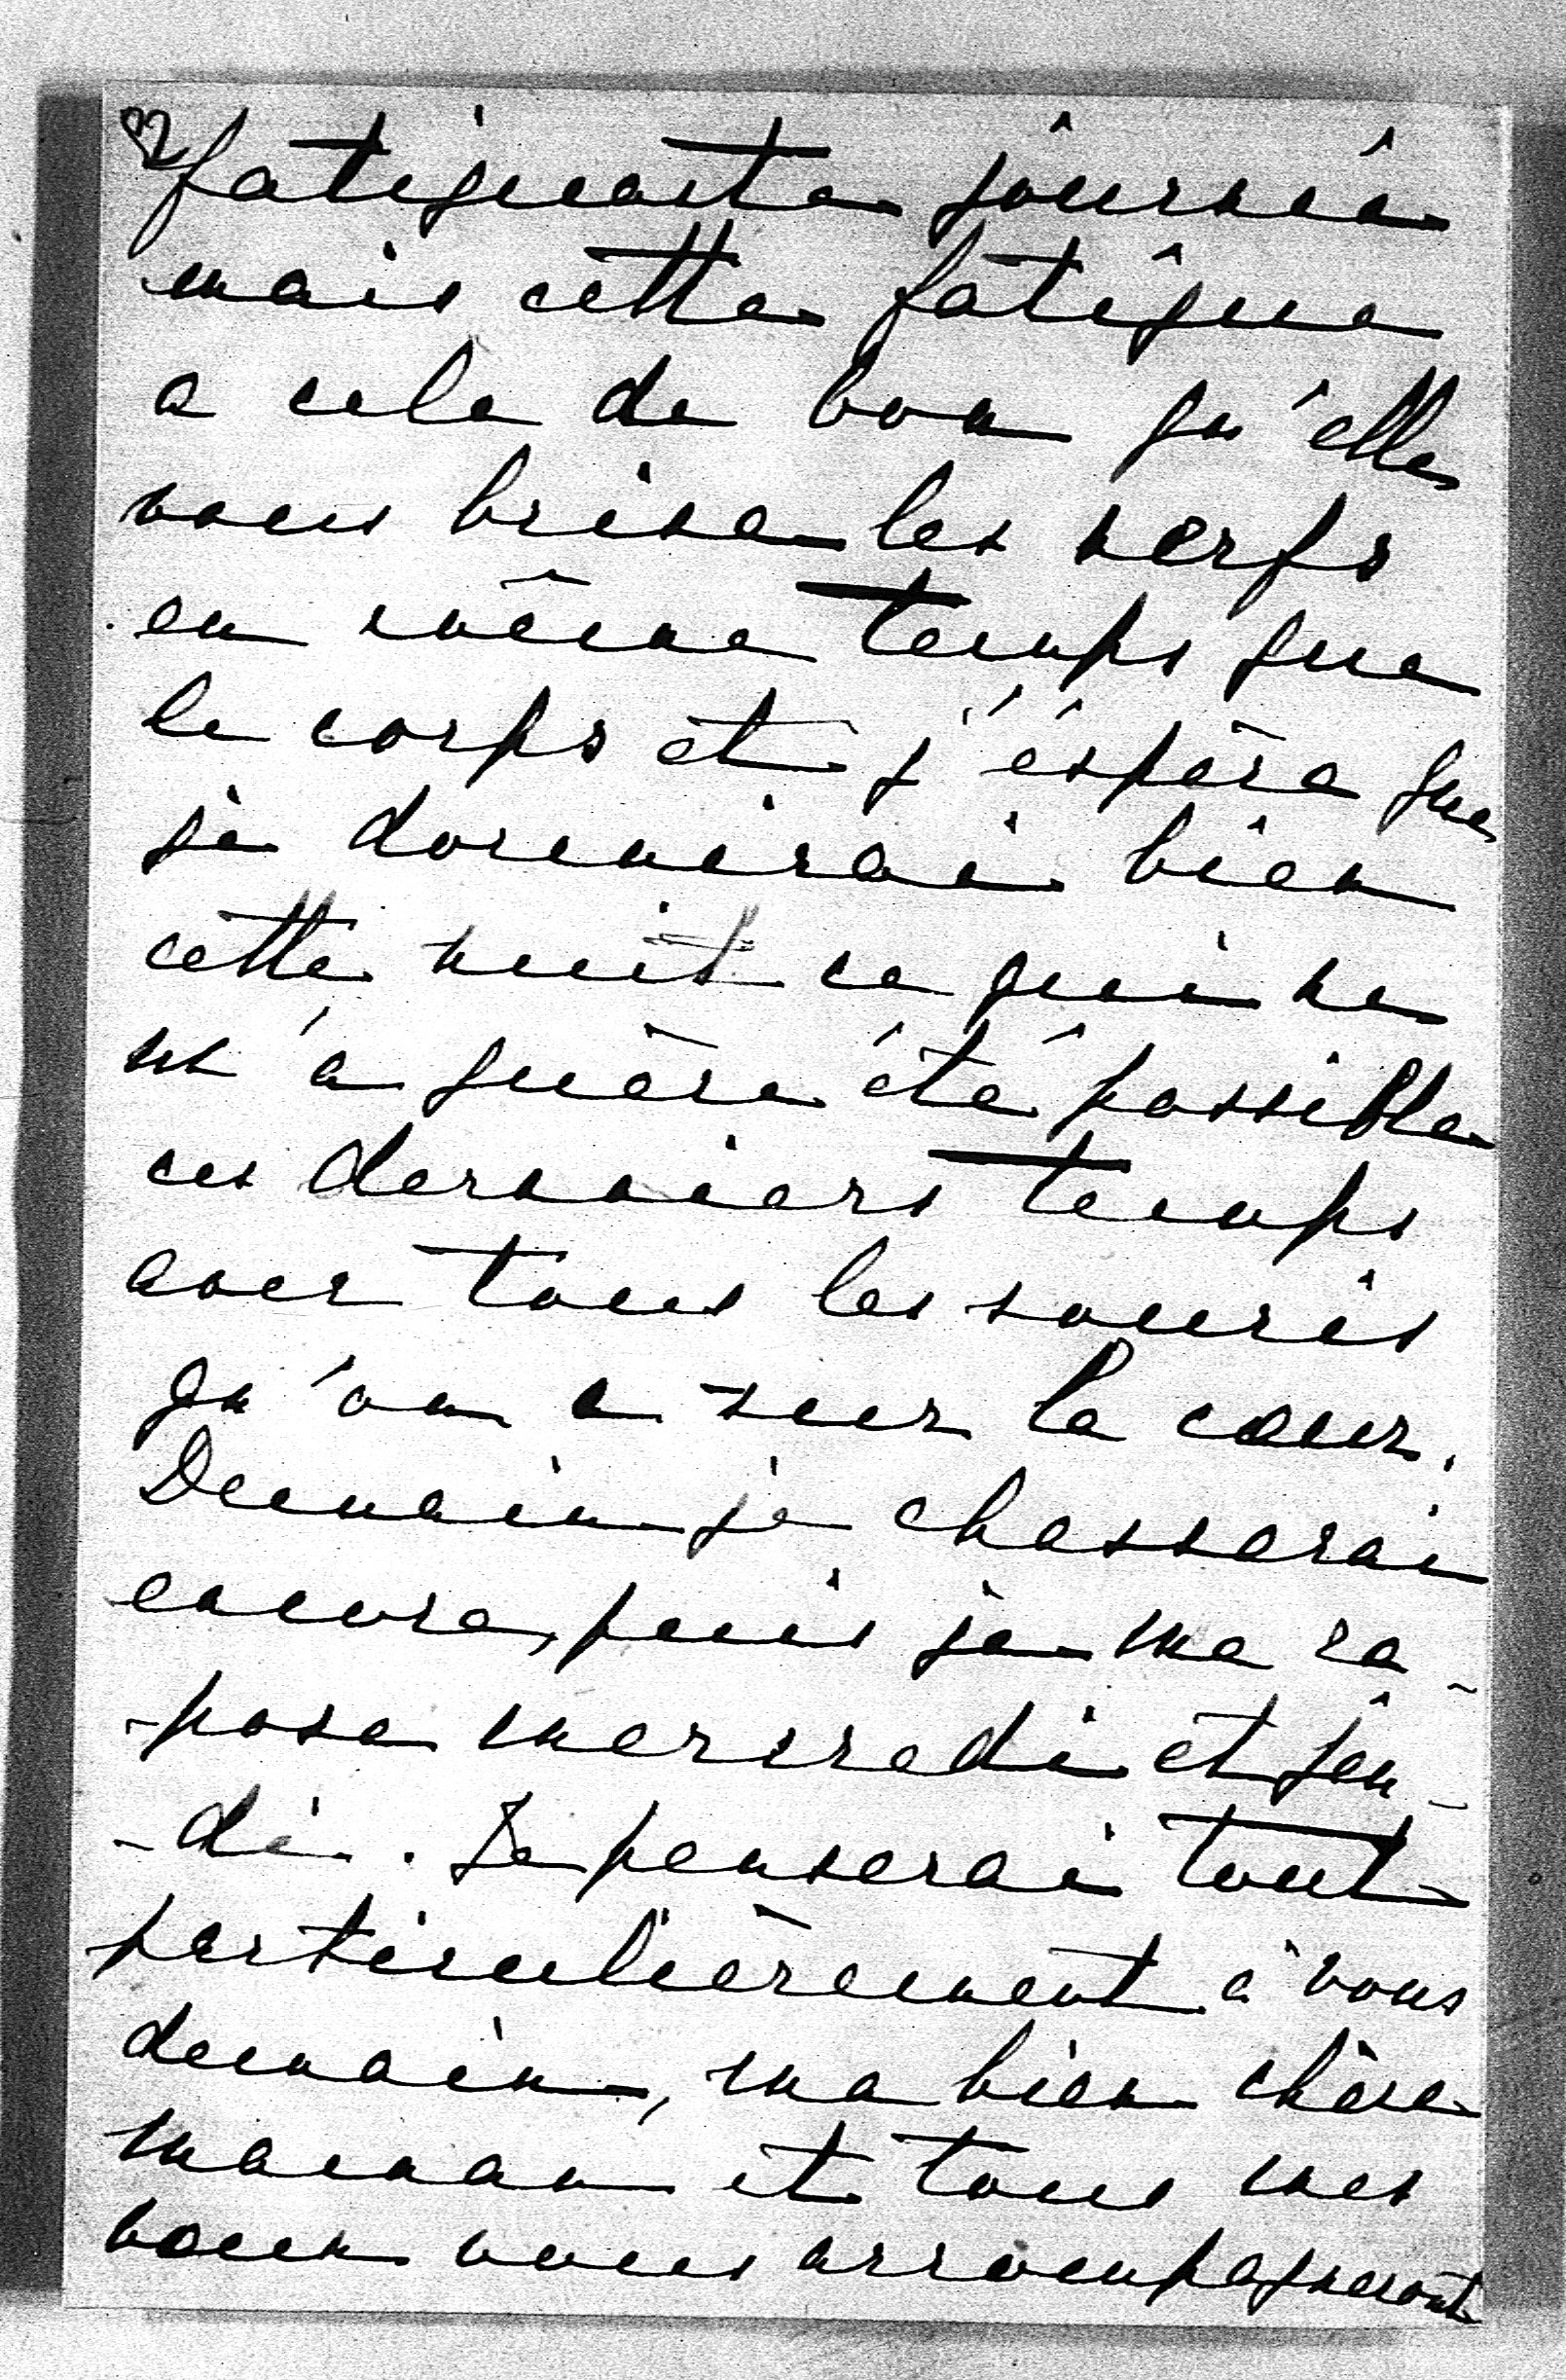 2
fatiguante journée
mais cette fatigue
a cela de bon qu'elle
vous brise les nerfs
en même temps que
le corps et j'éspère que
je dormirai bien
cette nuit ce qui ne
m'a guère été possible
ces derniers temps
avec tous les soucis
qu'on a sur le cœur.
Demain je chasserai
encore, puis je me re-
-pose mercredi et jeu-
-di. Je penserai tout
particulièrement à vous
demain, ma bien chère
maman et tous mes
voeux vous accompagneront